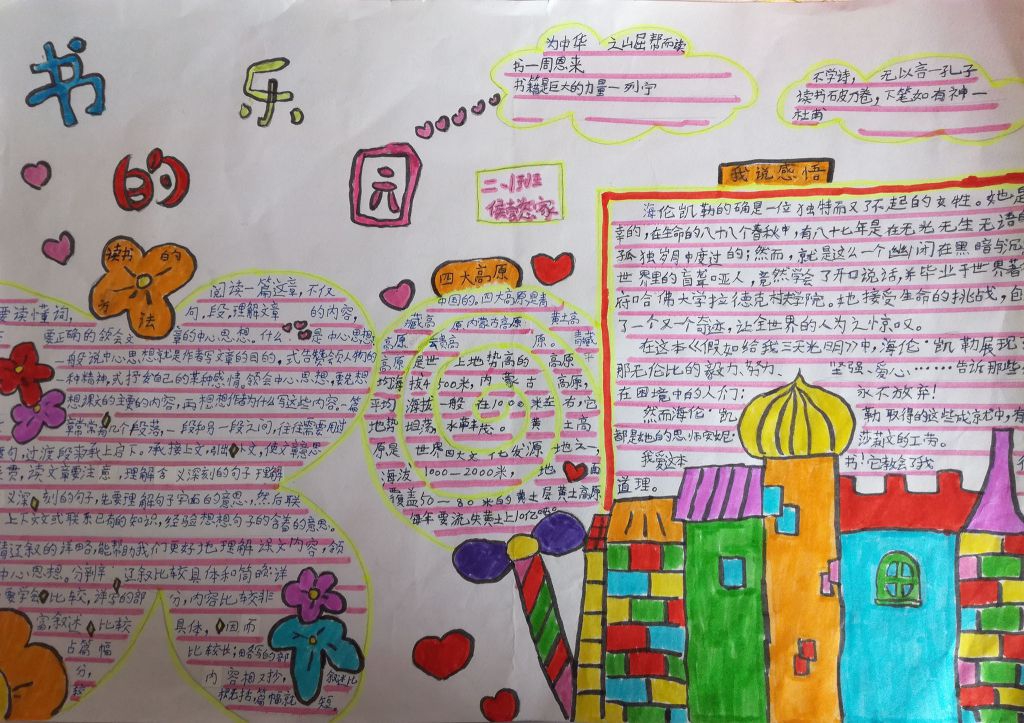 书的乐元
为中华 之山屈帮而读
书一周恩来
书籍是巨大的力量一列宁
不学诗, 无以言一孔子
读书破万卷,下笔如有神一
杜甫
二、1班
家
读书的
方法
要读懂词、
阅读一篇这章,不仅
句.段,理解文章 的内容,
要正确的领会文 章的中心思想。什么 是中心思想
一般说中心思想就是作者写文章的目的。式告赞领人物的
一种精神,式抒发自己的某种感情。领会中心思想,要先想
想课的主要的内容,再想想作者为什么写这些内容。一篇
章常常有几个段落,一段和另一段之间,往往需要用过
句,过渡段来承上启下。承接上文,引出下文,使文章意思
贯,读文章要注意,理解含义深刻的句子理解
义深刻的句子,先要理解句子字面的意思,然后联
上下文或联系已有的知识,经验想想句子的含着的意思。
清辽叙的详略,能帮助我们更好地理解课文内容,领
中心思想。分 辽叙比较具体和简略详
要学会比较,详写的部 分,内容比较非
富,叙述 比较 具体, 因而
占篇幅 比较长;略写的部
分, 内容相又抄, 叙述比
较 概括,篇幅就 短。
四大高原
中国的。四大高原是青
藏高 原,内蒙古高原, 黄土高
原, 云贵高 原。 青藏
高原 是世 上地势高的 高原平
均海拔4500米,内蒙古 高原,
平均 海拔一般 在1000米左右,它
地势 坦荡,水草丰茂。 黄 土高
原是 世界四大文 化发源 地之一,
海泼 1000—2000米, 地 面
覆盖50—80米的黄土层黄土高原
每年要流失黄土上10亿吨。
我说感悟
海伦凯勒的确是一位独特而又了不起的女性。她是
幸的,在生命的八十八个春秋中,有八十七年是在无光无生无语的
孤独岁月中度过的;然而,就是这么一个幽闭在黑暗与沉
世界里的盲聋哑人,竟然学会了开口说话,并毕业于世界著
府哈佛大学拉德克 学院。她接受生命的挑战,创
了一个又一个奇迹,让全世界的人为之惊叹。
在这本《假如给我三天光明》中,海伦·凯勒展现了
那无伦比的毅力、努力、 坚强、爱心……告诉那些
在困境中的人们: 永不放弃!
然而海伦·凯 勒取得的这些成京忧中,有
都是她的思师安妮· 莎莉文的工劳。
我爱这本 书!它教会了我
道理。